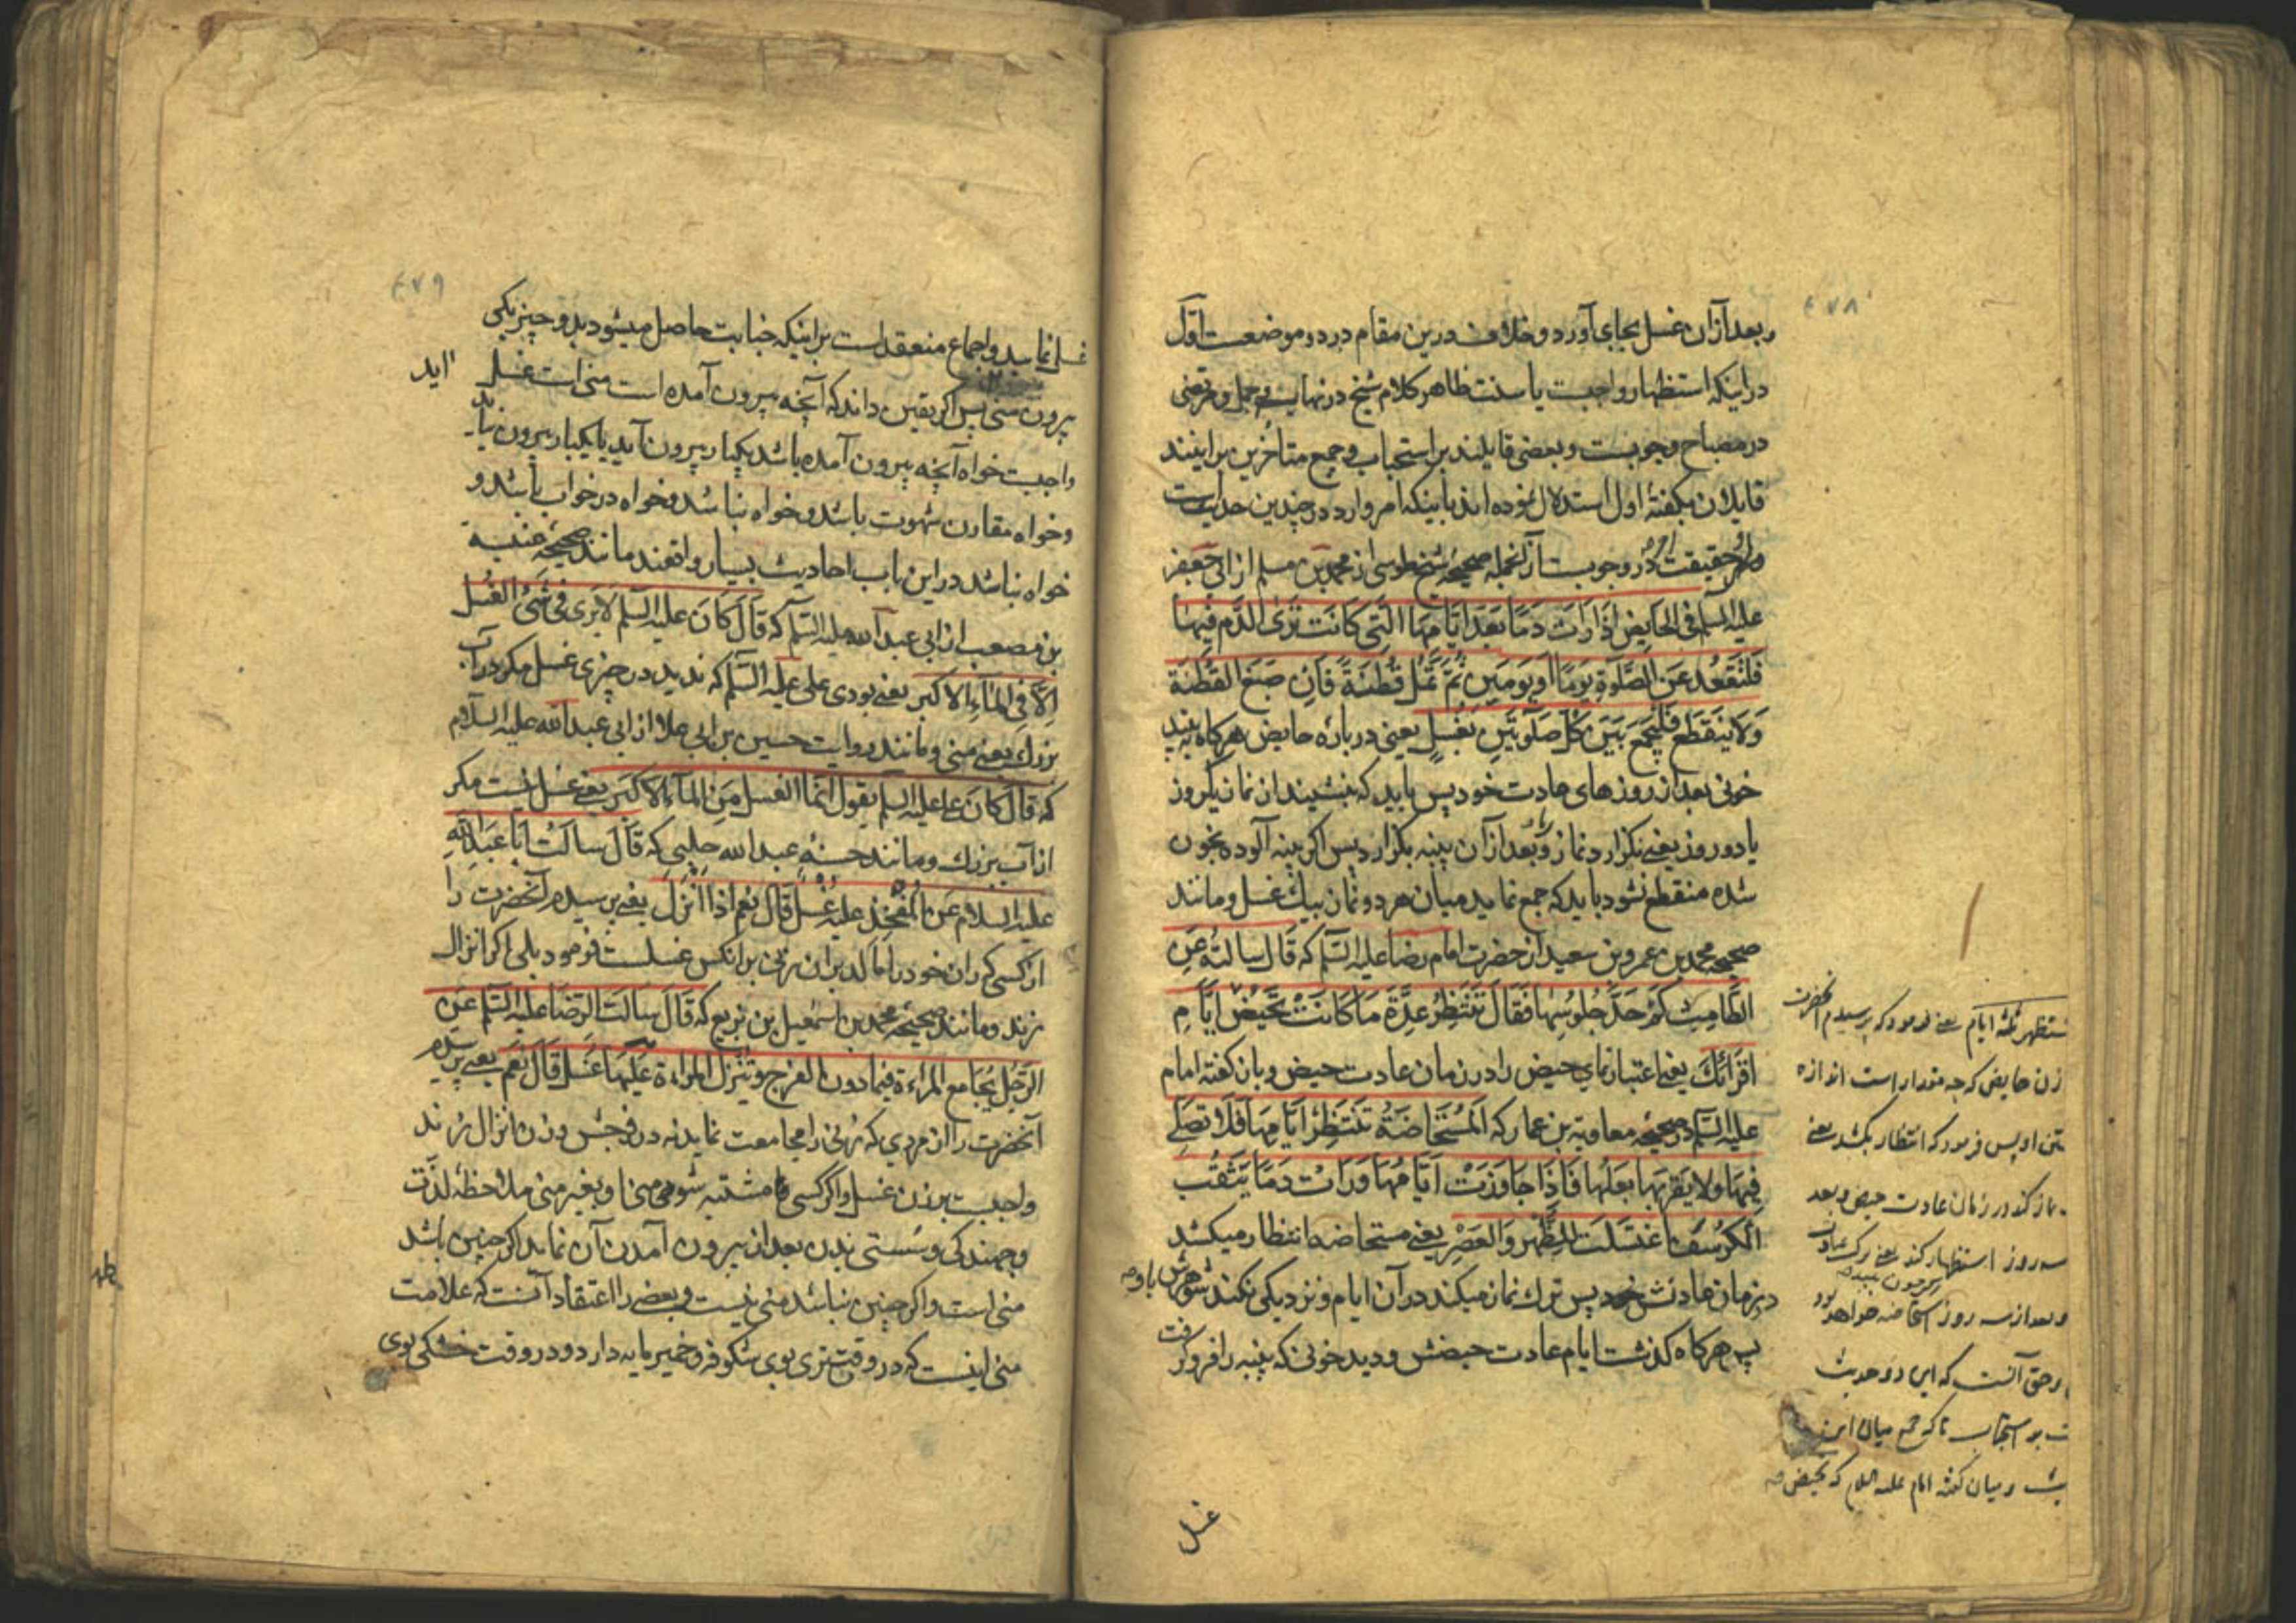 ۴۷۸
و بعد از آن غسل بجای آورد و خلاف درین مقام در دو موضعست اول
در اینکه استظهار واجبست یا سنت ظاهر کلام شیخ در نهایه و جمل و مرتضی
در مصباح وجوبست و بعضی قایلند بر استحباب و جمع متأخرین بر اینند
قایلان بگفتهٔ اول استدلال نموده اند باینکه امر وارد در چندین حدیثست
و امر حقیقت در وجوبست از آنجمله صحیحهٔ شیخ طوسی از محمد بن مسلم از ابی جعفر
علیه السلم فی الحایض اذا رات دما بعد ایامها التی کانت تری الدم فیها
فلتقعد عن الصلوة یوما او یومین ثم تمسل قطنة فان صبغ القطنة
ولا ینقطع فلیجمع بین کل صلوتین بغسل یعنی در بارهٔ حایض هرکاه به بیند
خونی بعد از روزهای عادت خود پس باید که بنشیند از نماز یکروز
یا دو روز یعنی نکزارد نماز را و بعد از آن پنبه بکزارد پس اکر پنبه آلوده بخون
شده منقطع نشود باید که جمع نماید میان هر دو نماز بیک غسل و مانند
صحیحه محمد بن عمرو بن سعید از حضرت امام رضا علیه السلم که قال سالته عن
الطامث کم حد جلوسها فقال تنتظر عدة ما کانت تحیض ایام
اقرائک یعنی اعتبار نمای حیض را در زمان عادت حیض و بان کفته امام
علیه السلم در صحیحه معاویة بن عمار که المستحاضة تنتظر ایامها فلا تصلی
فیها ولا یقربها بعلها فاذا جاوزت ایامها ورات دما یثقب
الکرسف اغتسلت للظهر والعصر یعنی مستحاضه انتظار میکشد
در زمان عادتش پس ترک نماز میکند در آن ایام و نزدیکی نکند شوهرش باو
پس هرکاه کذشت ایام عادت حیضش و دید خونی که پنبه را فرو کرفت
غسل
تستظهر ثلثه ایام یعنی فرمود که پرسیدم آنحضرت
زن حایض که چه مقدار است اندازه
او پس فرمود که انتظار بکشد یعنی
نماز کند در زمان عادت حیض و بعد
سه روز استظهار کند یعنی ترک عبادت
و بعد از سه روز استحاضه خواهد بود
و حق آنست که این دو حدیث
بر استحباب تا که جمع میان این
و میان کفته امام علیه السلام که تحیض
۴۷۹
غسل نماید و اجماع منعقد است بر اینکه جنابت حاصل میشود بدو چیز یکی
بیرون منی پس اکر یقین داند که آنچه بیرون آمده است منی است غسل
آمدن
واجبست خواه آنچه بیرون آمده باشد یکبار بیرون آید یا یکبار بیرون نیاید
و خواه مقارن شهوت باشد و خواه نباشد و خواه در خواب باشد و
خواه نباشد در این باب احادیث بسیار واقعند مانند صحیحه عنبسة
بن مصعب از ابی عبد الله علیه السلم که قال کان علیه السلم لا یری فی شئ الغسل
الا فی الماء الاکبر یعنی بودی علی علیه السلم که ندید در چیزی غسل مکر در آب
بزرک یعنی منی و مانند روایت حسین بن ابی علا از ابی عبد الله علیه السلام
که قال کان علی علیه السلم یقول انما الغسل من الماء الاکبر یعنی غسل نیست مکر
از آب بزرک و مانند حسنه عبد الله حلبی که قال سالت ابا عبد الله
علیه السلام عن المفخذ علیه غسل قال نعم اذا انزل یعنی پرسیدم آنحضرت را
از کسی که ران خود را مالد بران زنی بر انکس غسلست فرمود بلی اکر انزال
زند و مانند صحیحه محمد بن اسمعیل بن بزیع که قال سالت الرضا علیه السلم عن
الرجل یجامع المراءة فیما دون الفرج و تنزل المراءة علیها غسل قال نعم یعنی پرسیدم
آنحضرت را از مردی که زنی را مجامعت نماید نه در فرجش و زن انزال زند
واجبست بر زن غسل و اکر کسی را مشتبه شود منی او بغیر منی ملاحظهٔ لذت
و جهندکی و سستی بدن بعد از بیرون آمدن آن نماید اکر چنین باشد
منی است و اکر چنین نباشد منی نیست و بعضی را اعتقاد آنست که علامت
منی اینست که در وقت تری بوی شکوفه و خمیر مایه دارد و در وقت خشکی بوی